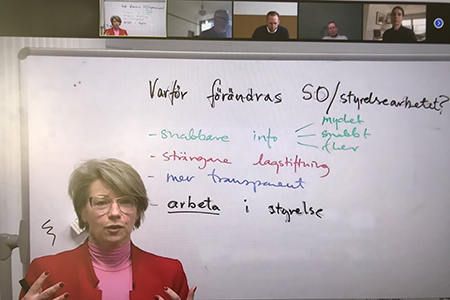 Varför förändras SO/styrelsearbetet?
- snabbare info
mycket
snabbt
fler
- strängare lagstiftning
- mer transparent
- arbeta i styrelse